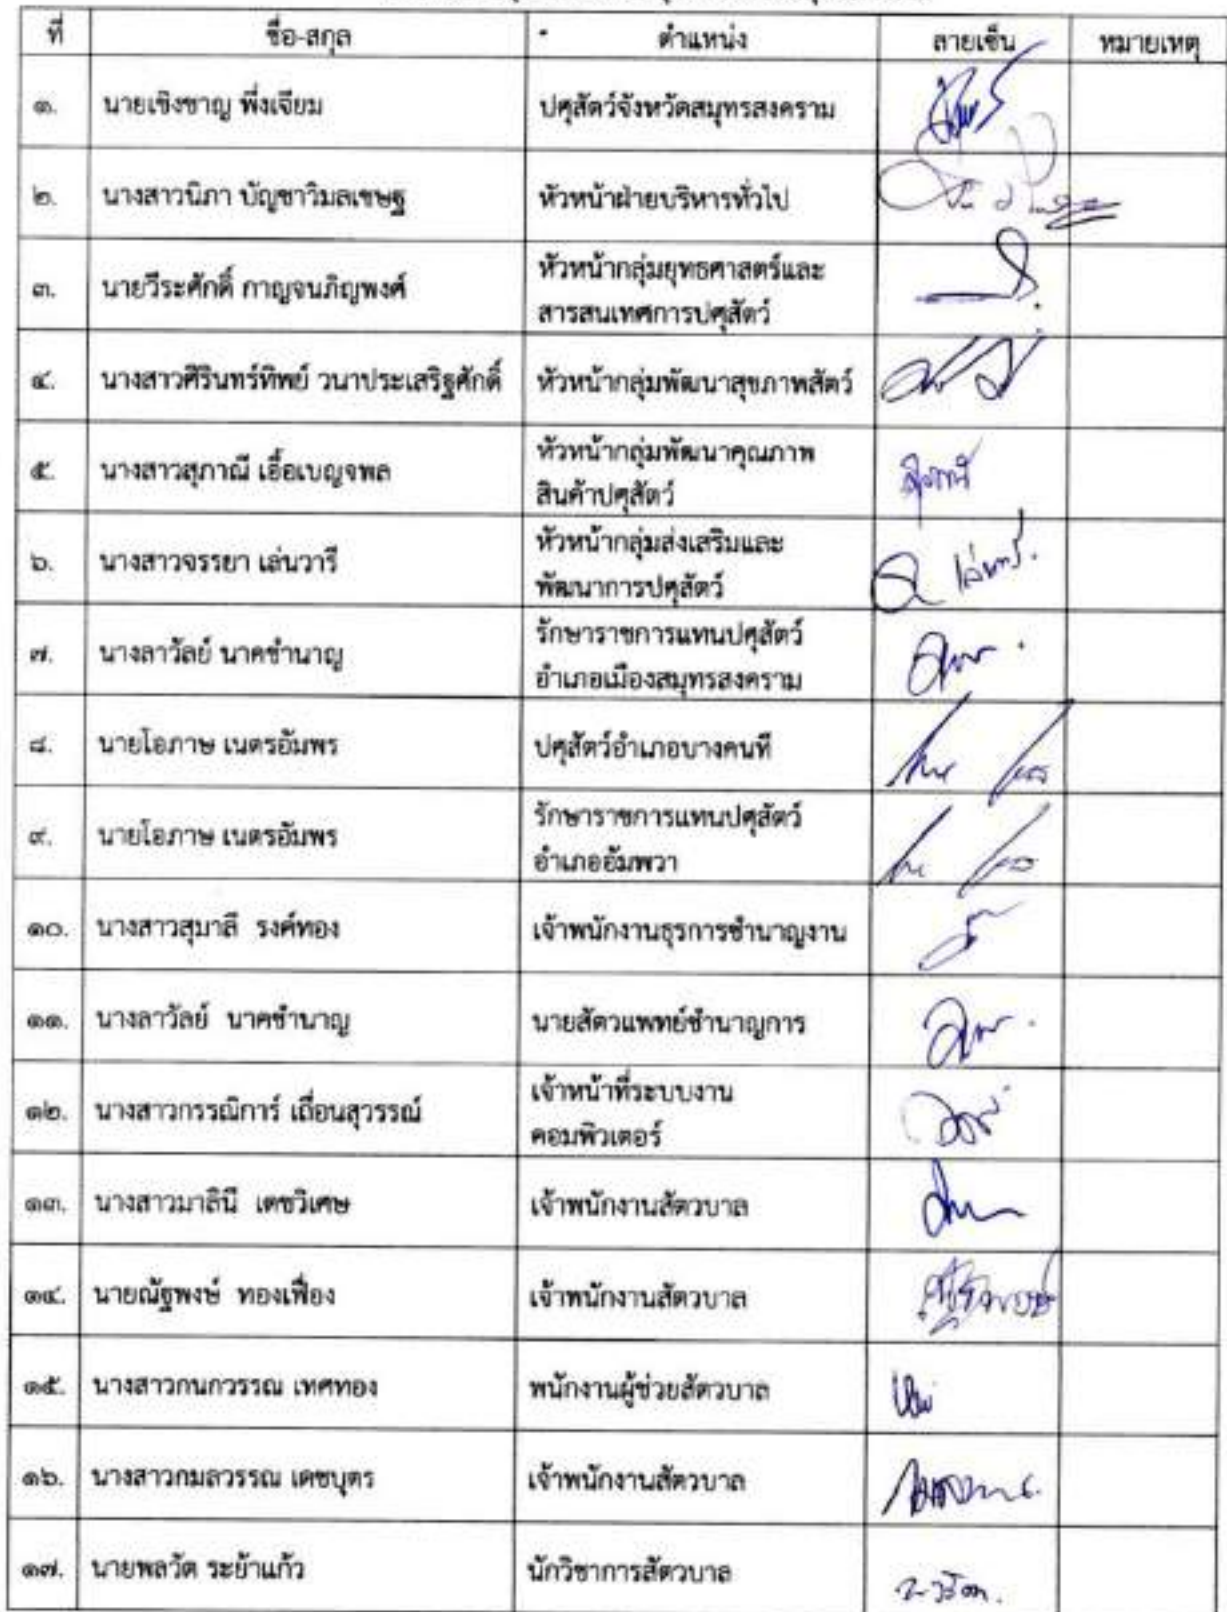 ที่ ชื่อ-สกุล ตำแหน่ง ลายเซ็น หมายเหตุ
๑. นายเชิงชาญ พึ่งเจียม ปศุสัตว์จังหวัดสมุทรสงคราม
๒. นางสาวนิภา บัญชาวิมลเชษฐ หัวหน้าฝ่ายบริหารทั่วไป
๓. นายวีระศักดิ์ กาญจนภิญพงศ์ หัวหน้ากลุ่มยุทธศาสตร์และ
สารสนเทศการปศุสัตว์
๔. นางสาวศิรินทร์ทิพย์ วนาประเสริฐศักดิ์ หัวหน้ากลุ่มพัฒนาสุขภาพสัตว์
๕. นางสาวสุภาณี เอื้อเบญจพล หัวหน้ากลุ่มพัฒนาคุณภาพ
สินค้าปศุสัตว์
๖. นางสาวจรรยา เล่นวารี หัวหน้ากลุ่มส่งเสริมและ
พัฒนาการปศุสัตว์
๗. นางลาวัลย์ นาคชำนาญ รักษาราชการแทนปศุสัตว์
อำเภอเมืองสมุทรสงคราม
๘. นายโอภาษ เนตรอัมพร ปศุสัตว์อำเภอบางคนที
๙. นายโอภาษ เนตรอัมพร รักษาราชการแทนปศุสัตว์
อำเภออัมพวา
๑๐. นางสาวสุมาลี รงค์ทอง เจ้าพนักงานธุรการชำนาญงาน
๑๑. นางลาวัลย์ นาคชำนาญ นายสัตวแพทย์ชำนาญการ
๑๒. นางสาวกรรณิการ์ เถื่อนสุวรรณ์ เจ้าหน้าที่ระบบงาน
คอมพิวเตอร์
๑๓. นางสาวมาลินี เดชวิเศษ เจ้าพนักงานสัตวบาล
๑๔. นายณัฐพงษ์ ทองเฟื่อง เจ้าพนักงานสัตวบาล
๑๕. นางสาวกนกวรรณ เทศทอง พนักงานผู้ช่วยสัตวบาล
๑๖. นางสาวกมลวรรณ เดชบุตร เจ้าพนักงานสัตวบาล
๑๗. นายพลวัต ระย้าแก้ว นักวิชาการสัตวบาล